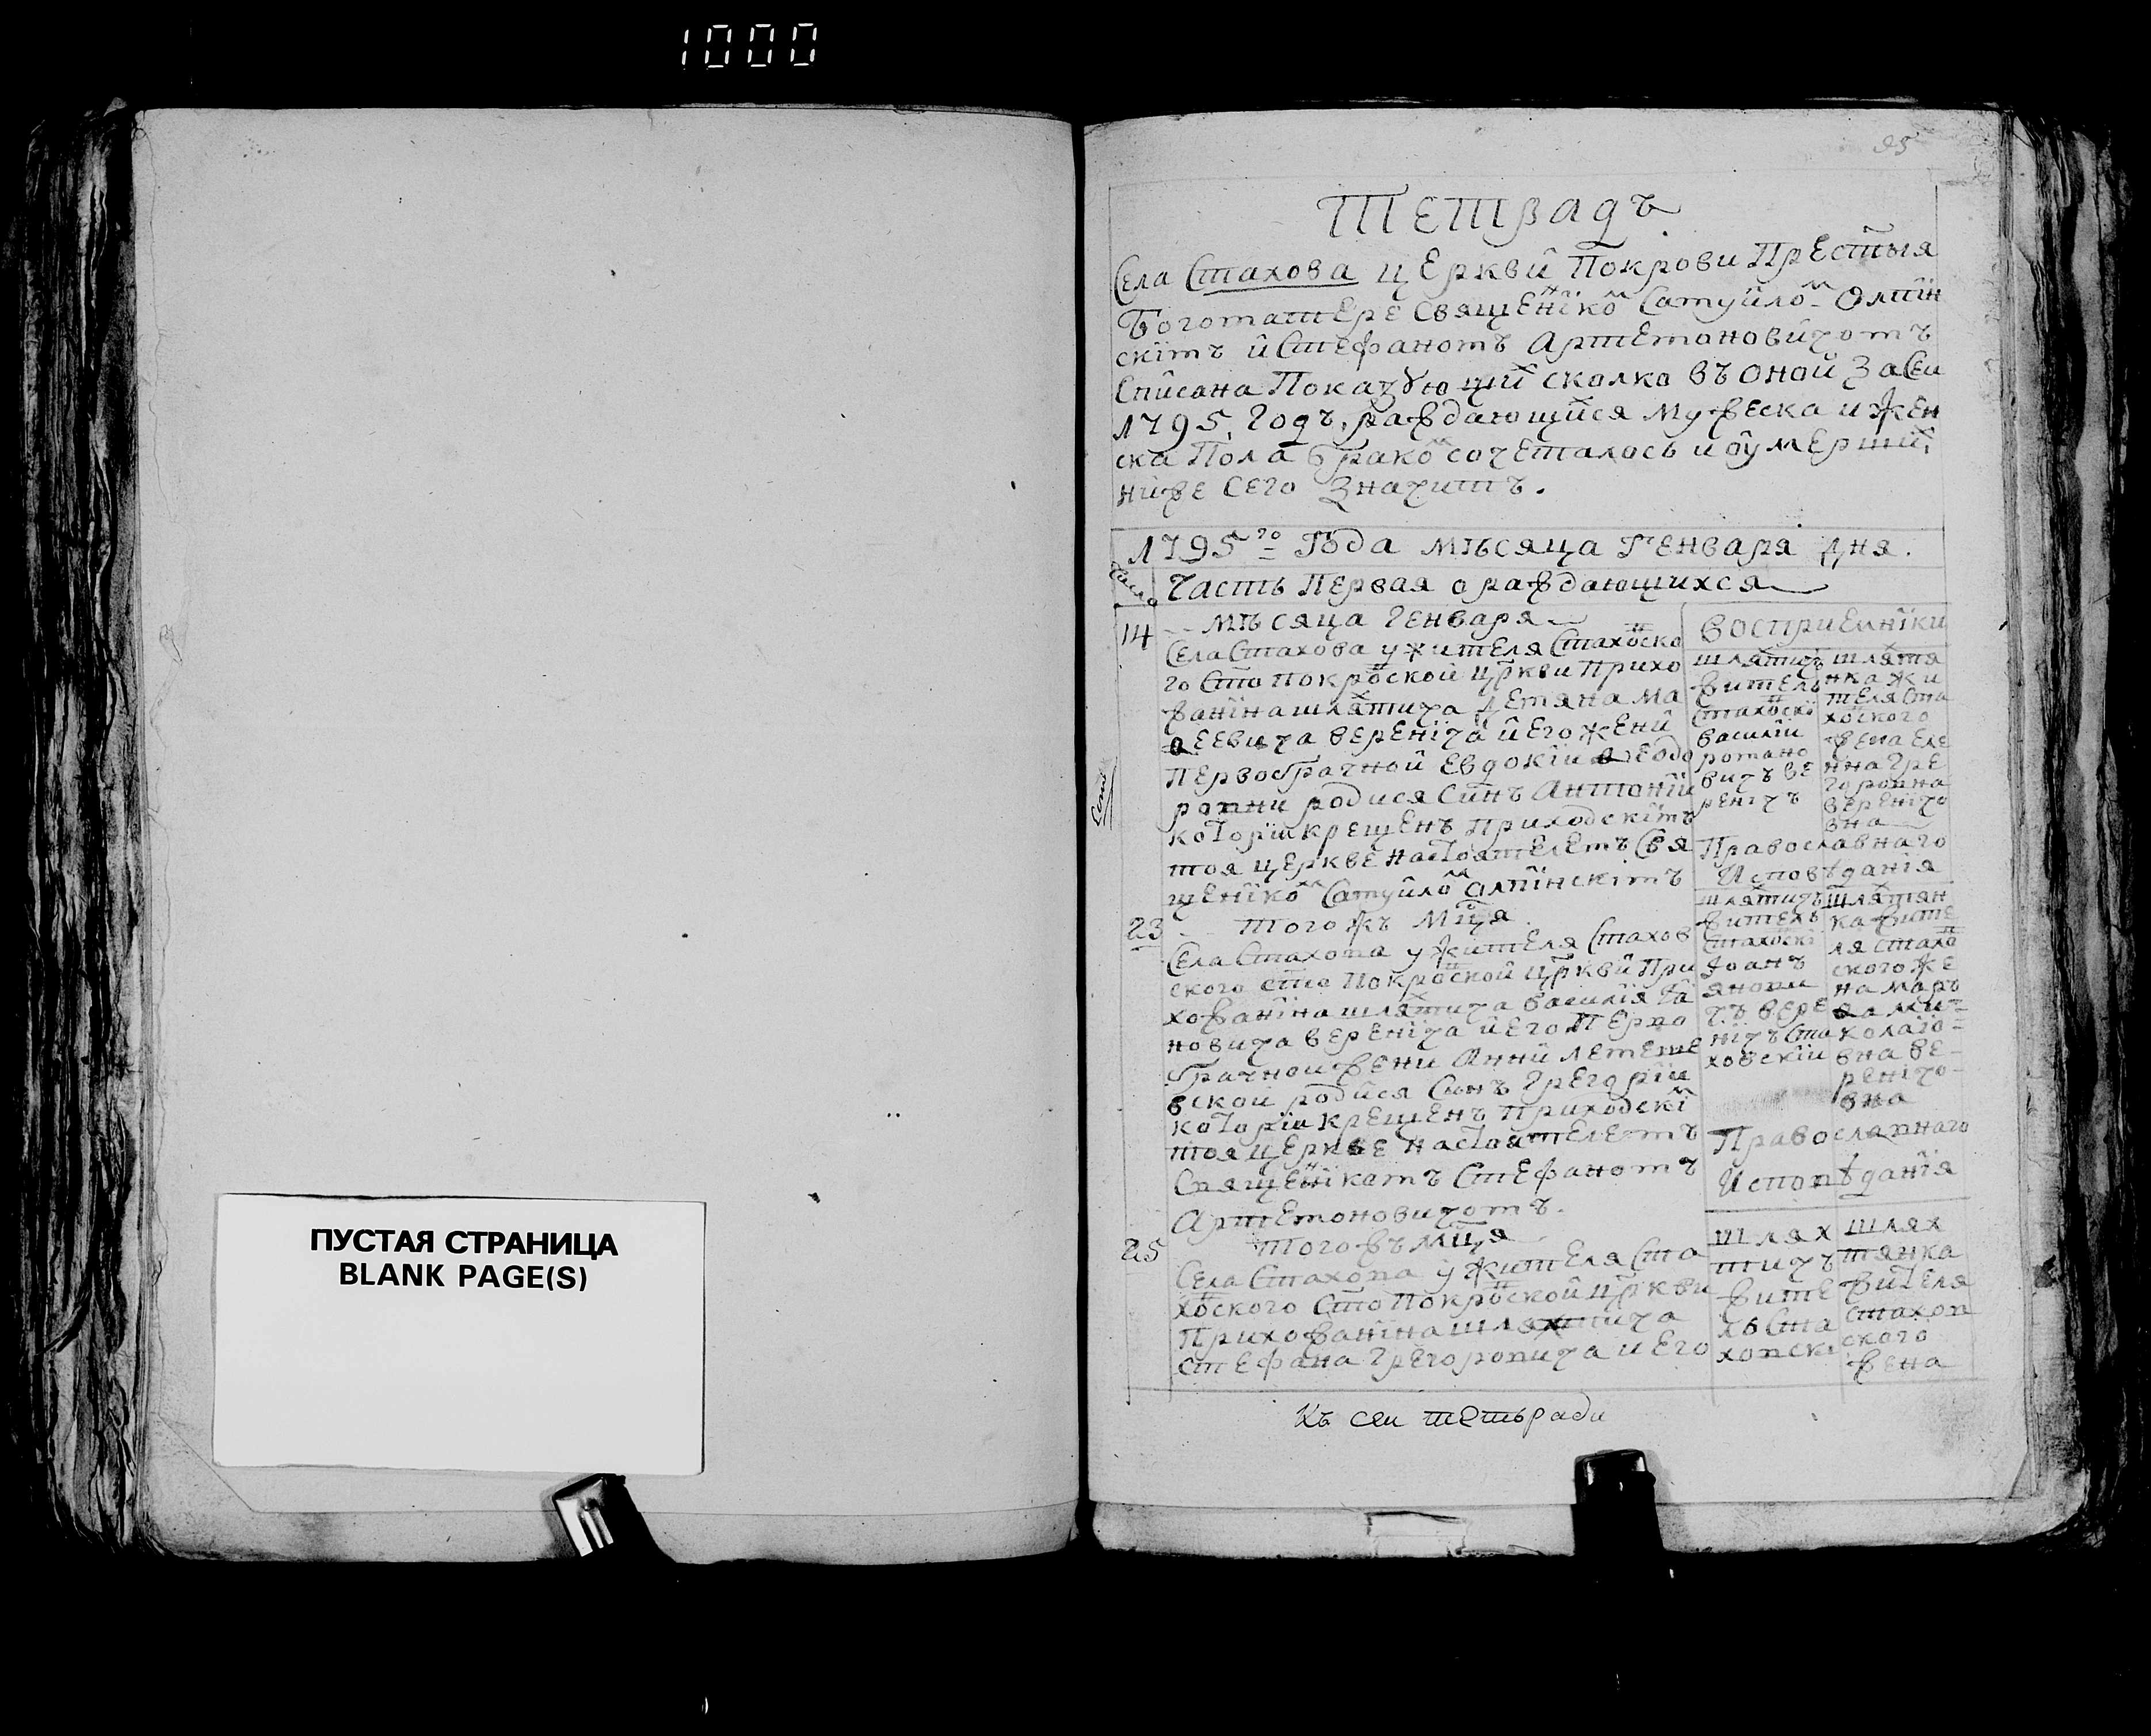 1000
ПУСТАЯ СТРАНИЦА
BLANK PAGE(S)
95
Тетрадъ
Села Стахова церкви Покрови Престыя
Богоматере Священіко Самуйло Олпін
скімъ и Стефаномъ Артемоновичомъ
Списана Показующи сколко въ оной За Сеи
1795 Годъ, раждающися мужеска и жен
ска Пола брако сочеталось и оумерши,
ниже Сего Значитъ.
1795го Года мѣсяца Генваря Дня.
Число
Часть Первая о раждающихся
14
мѣсяца Генваря
Села Стахова у жителя Стахоско
го Сто покроской цркви Прихо
жаніна шлятича Демяна Ма
ѳеевича вереніча и его жени
Первобрачной Евдокіи Ѳеодо
ровни родися Синъ Антоній
которіи крещенъ Приходскімъ
тоя церкве настоятелемъ Свя
щеніко Самуйло Олпінскімъ
восприемніки
шлятичъ
житель
Стахоскі
василіи
романо
вичъ ве
ренічъ
шлятя
нка жи
теля Ста
хоского
жена Еле
нна Гре
горовна
веренічо
вна
Православнаго
Исповѣданія
23
Того жъ Мця
Села Стахова у жителя Стахов
ского сто Покроской Цркви При
хожаніна шлятича василія Іа
новича вереніча и его Перво
брачнои жени Анни Лемеше
вскои родися Сынъ Грегоріи
которіи крещенъ Приходскі
тоя церкве настоятелемъ
Священікамъ Стефаномъ
Артемоновичомъ.
шлятичъ
житель
Стахоскі
Іоанъ
янови
чъ вере
нічъ Ста
ховскіи
шлятян
ка жите
ля стахо
ского же
на Маръ
ѳа Ми
колаіо
вна ве
реничо
вна
Православнаго
Исповѣданія
25
Того жъ мця
Села Стахова у жителя Ста
хоского Сто Покроской цркви
Прихожаніна шляхтича
Стефана Грегоровича и Его
шлях
тичъ
жите
ль Ста
ховски
шлях
тянка
жителя
стахов
ского
жена
Къ сеи тетьради